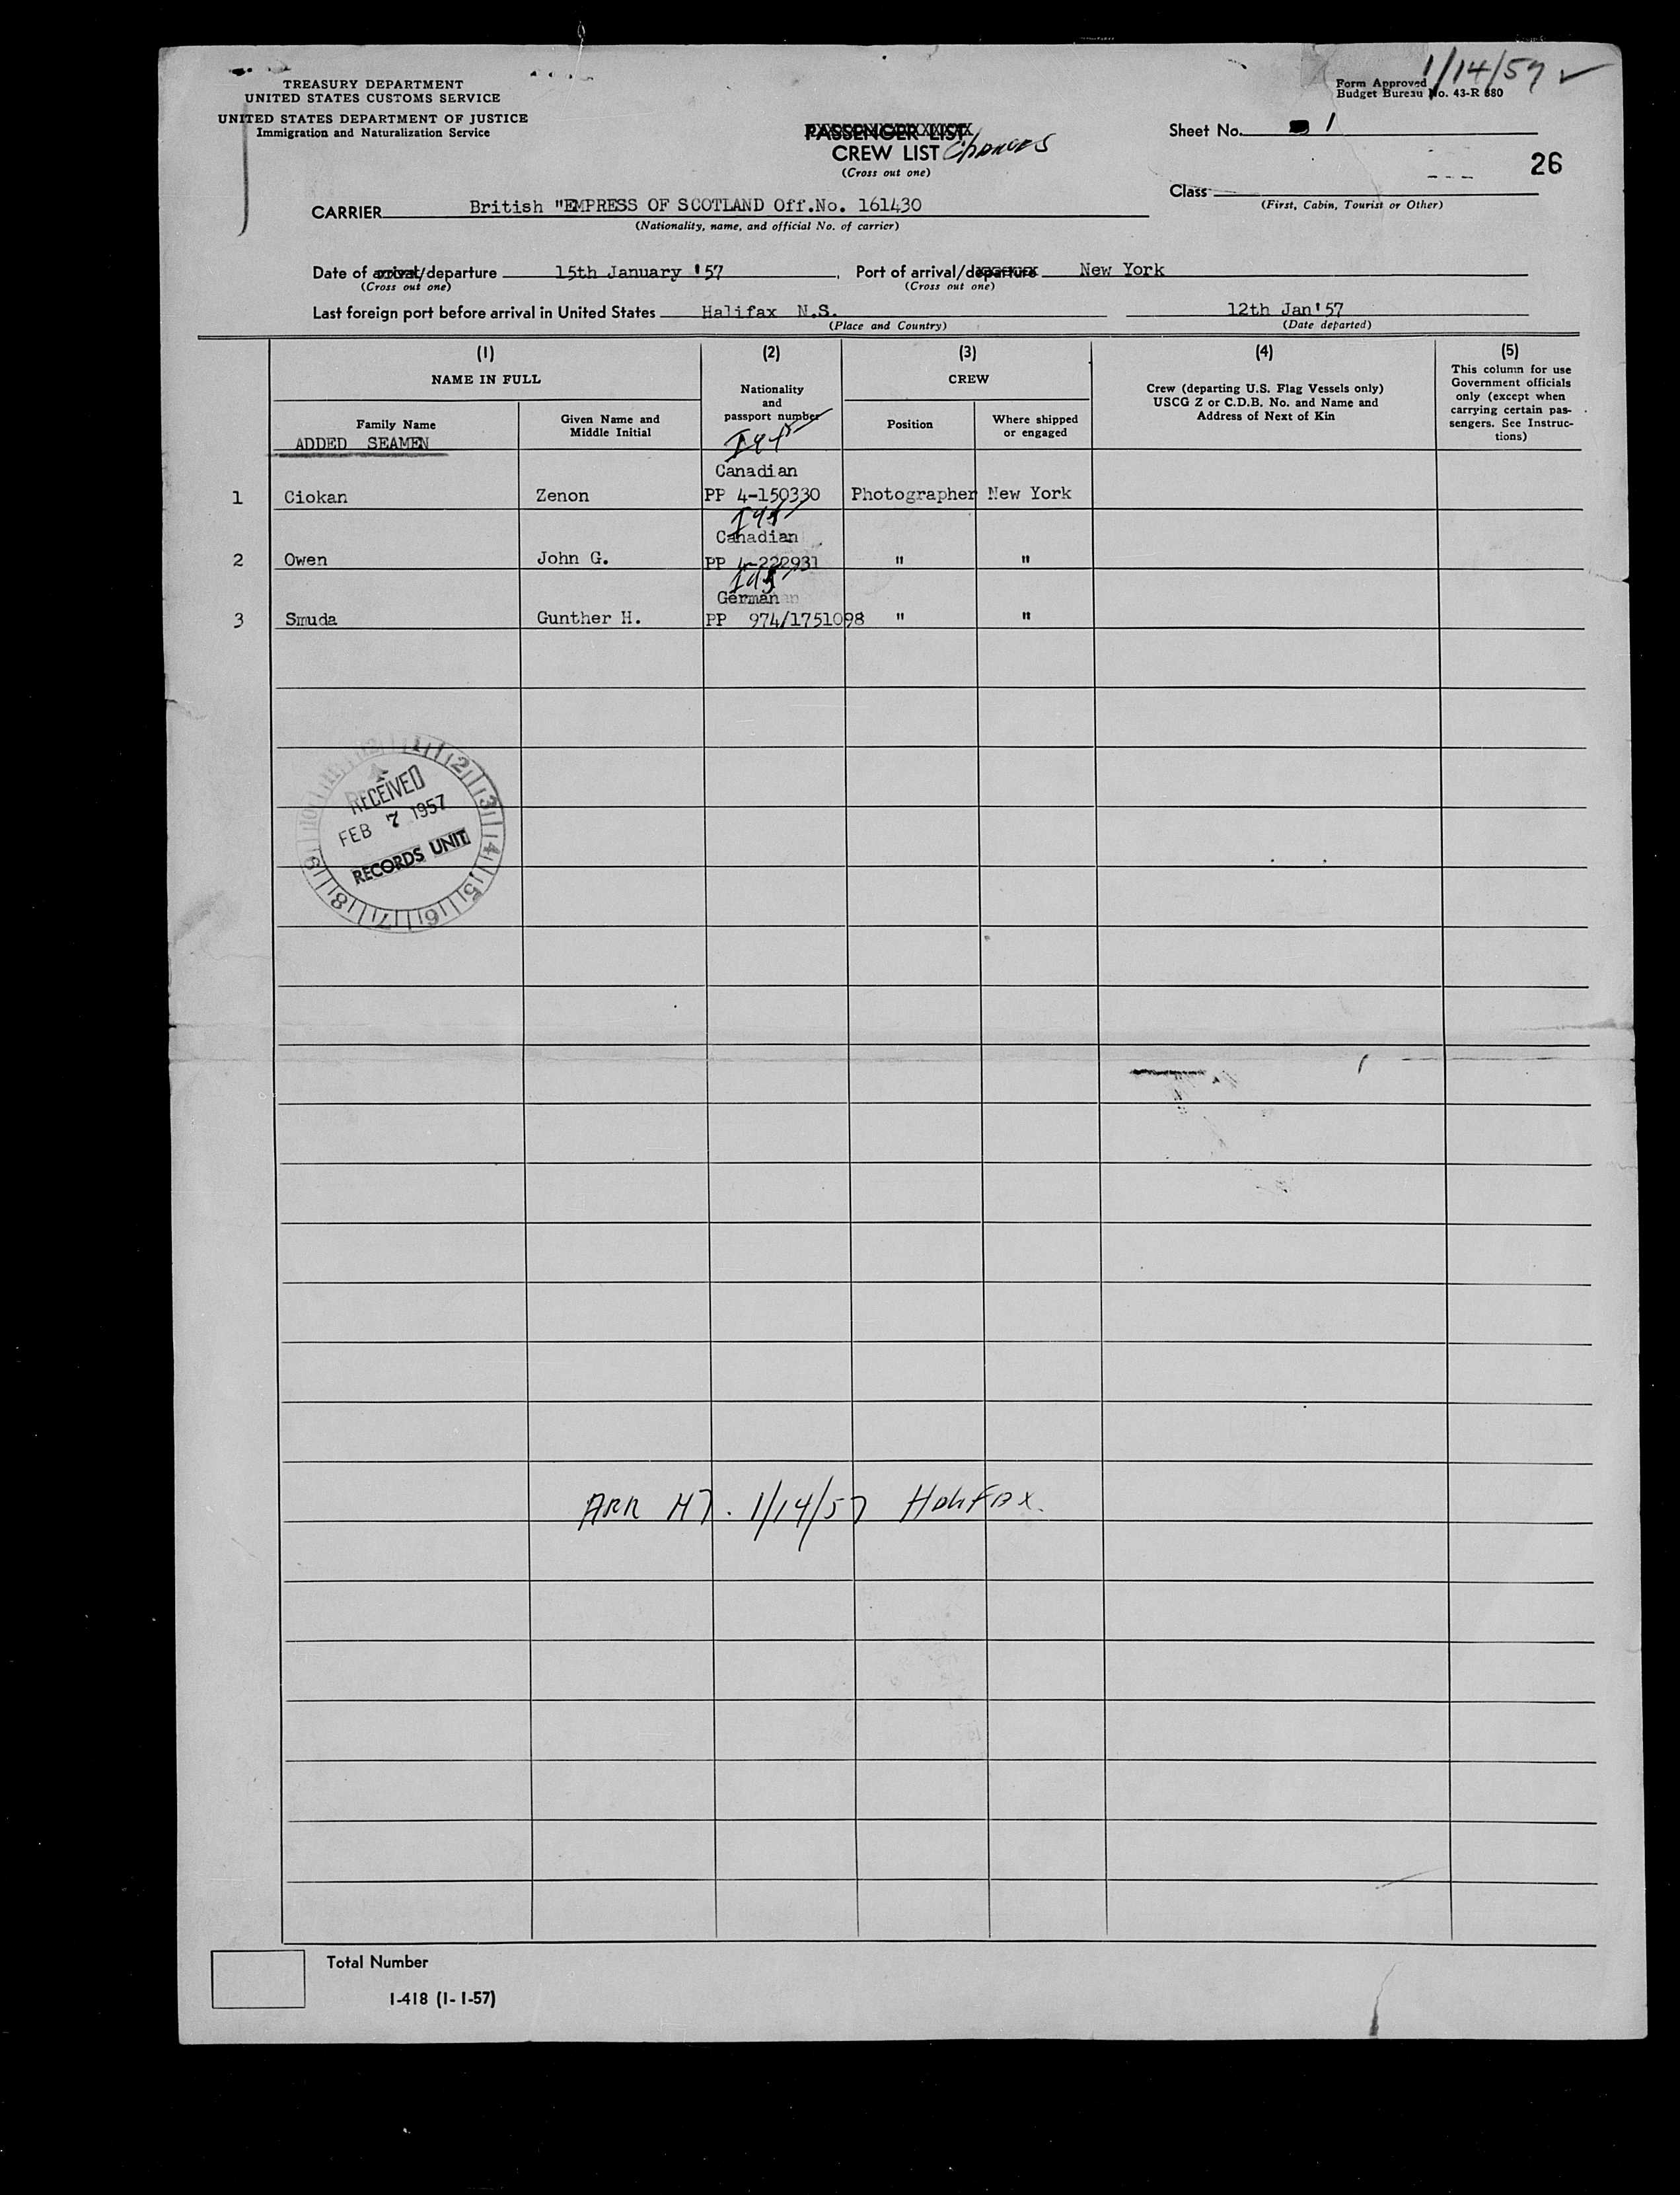 1/14/57 ✓
TREASURY DEPARTMENT
UNITED STATES CUSTOMS SERVICE
UNITED STATES DEPARTMENT OF JUSTICE
Immigration and Naturalization Service
Form Approved
Budget Bureau No. 43-R 680
PASSENGER LIST
CREW LIST Changes
(Cross out one)
Sheet No. 1
26
Class
(First, Cabin, Tourist or Other)
CARRIER British "EMPRESS OF SCOTLAND Off.No. 161430
(Nationality, name, and official No. of carrier)
Date of arrival/departure 15th January '57, Port of arrival/departure New York
(Cross out one) (Cross out one)
Last foreign port before arrival in United States Halifax N.S. 12th Jan'57
(Place and Country) (Date departed)
(1) (2) (3) (4) (5)
NAME IN FULL
Family Name
Given Name and
Middle Initial
Nationality
and
passport number
CREW
Position
Where shipped
or engaged
Crew (departing U.S. Flag Vessels only)
USCG Z or C.D.B. No. and Name and
Address of Next of Kin
This column for use
Government officials
only (except when
carrying certain pas-
sengers. See Instruc-
tions)
ADDED SEAMEN
I95
Canadian
1 Ciokan Zenon PP 4-150330 Photographer New York
I95
Canadian
2 Owen John G. PP 4-222931 " "
I95
German
3 Smuda Gunther H. PP 974/1751098 " "
12 1 2 3 4 5 6 7 8 9 10 11
RECEIVED
FEB 7 1957
RECORDS UNIT
ARR NY. 1/14/57 Halifax.
Total Number
I-418 (1-1-57)